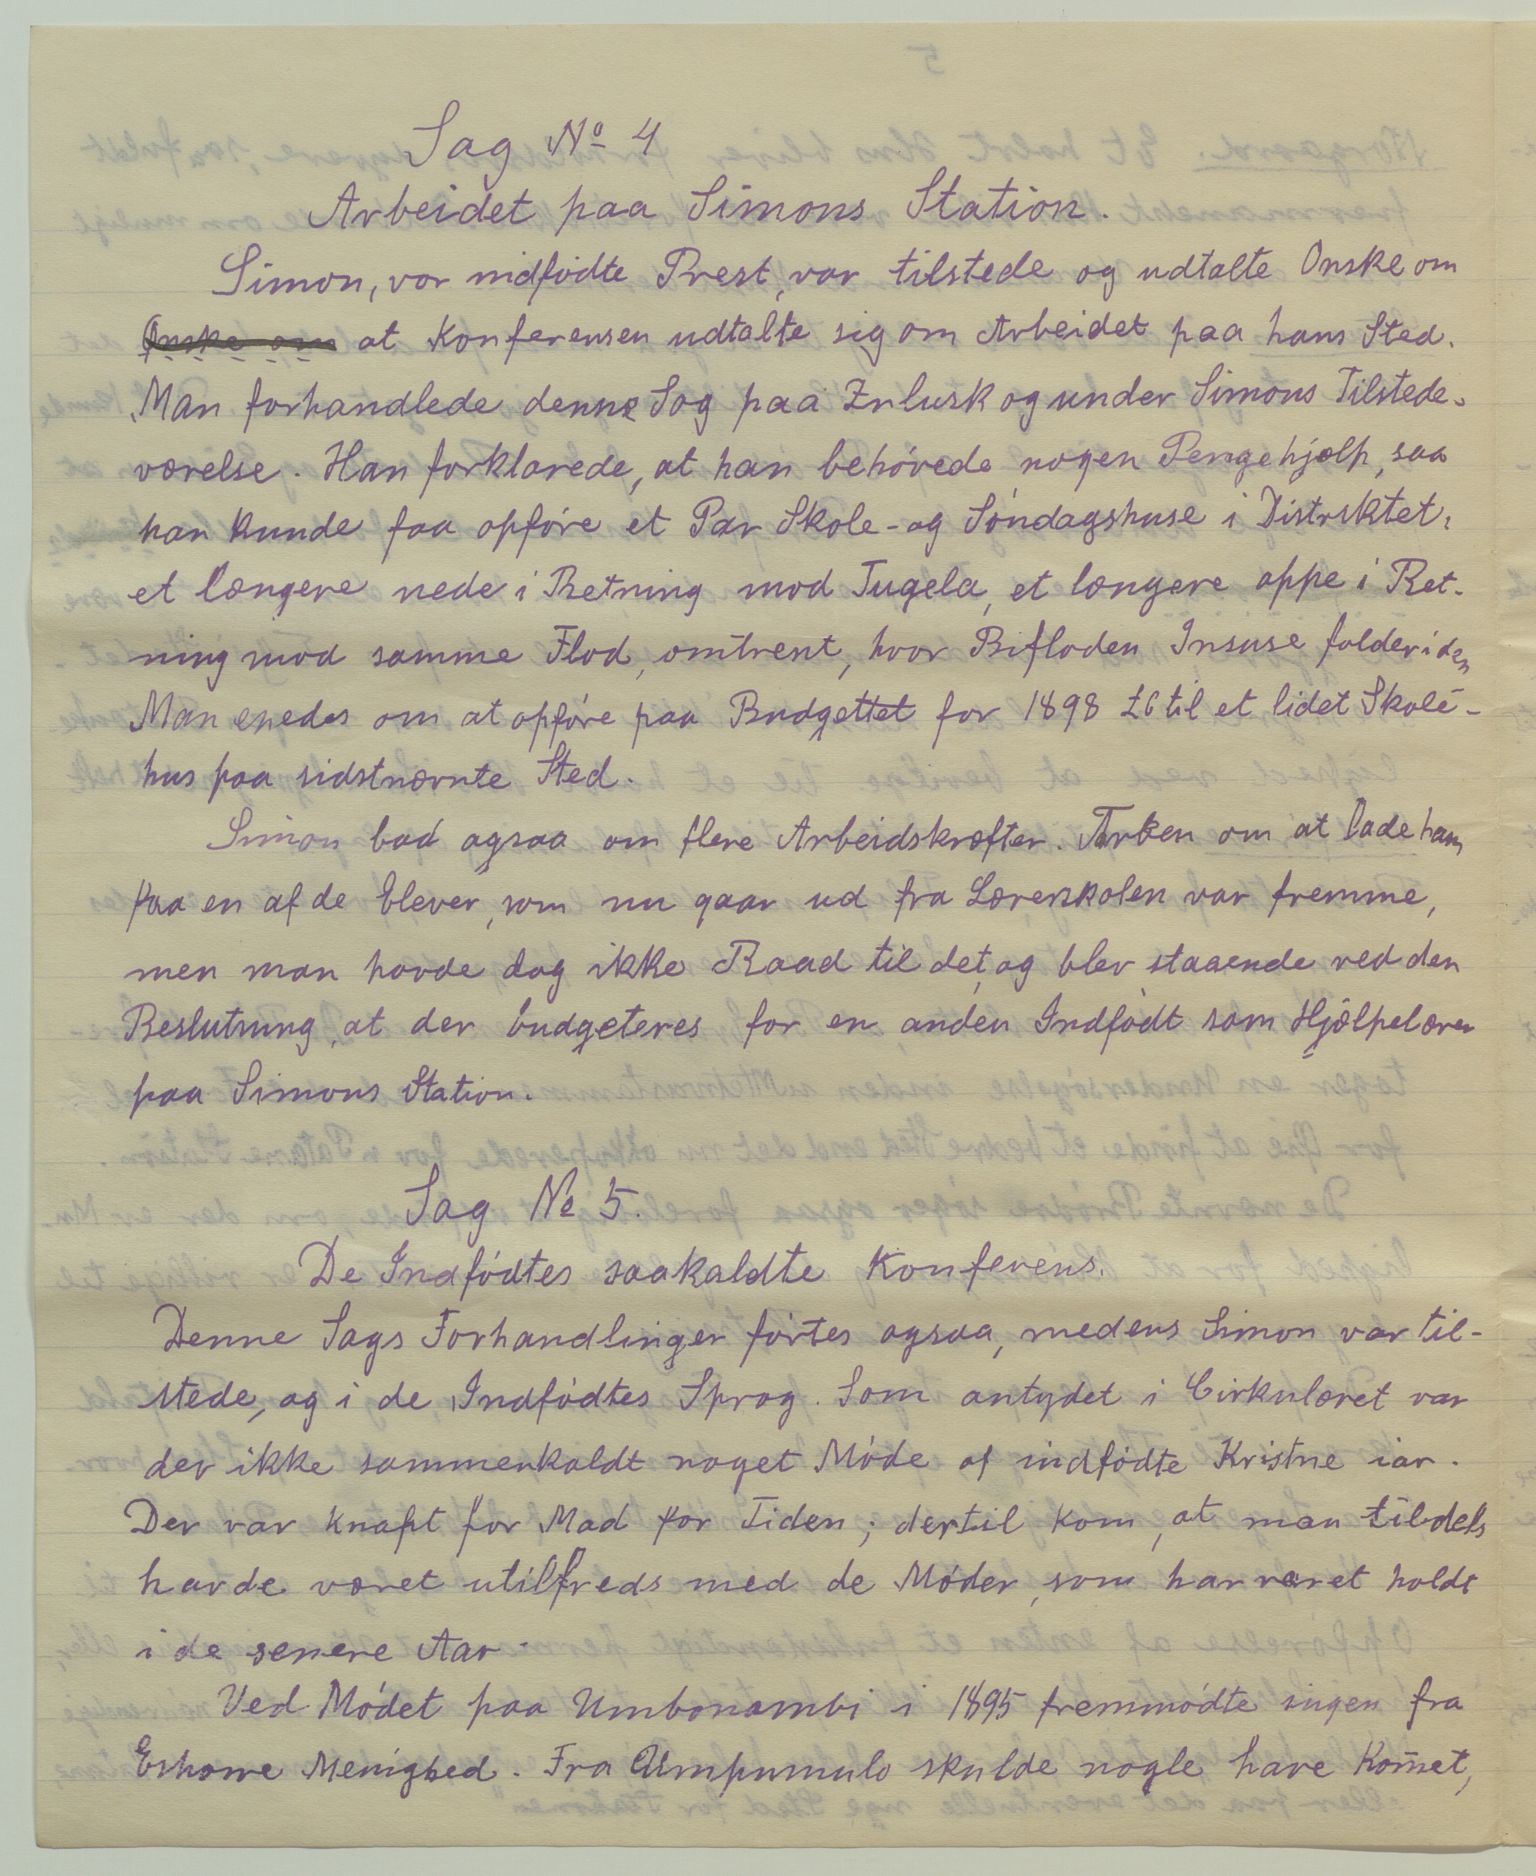 Sag No 4
Arbeidet paa Simons Station.
Simon, vor indfödte Prest, var tilstede og udtalte Onske om
Onske om at Konferensen udtalte sig om Arbeidet paa hans Sted.
Man forhandlede denne Sag paa Zulusk og under Simons Tilstede-
værelse. Han forklarede, at han behövede nogen Pengehjælp, saa
han kunde faa opföre et Par Skole- og Söndagshuse i Distriktet,
et længere nede i Retning mod Tugela, et længere oppe i Ret-
ning mod samme Flod, omtrent, hvor Bifloden Insuse falder i den
Man enedes om at opföre paa Budgettet for 1898 £6 til et lidet Skole-
hus paa sidstnævnte Sted.
Simon bad ogsaa om flere Arbeidskræfter. Tanken om at lade ham
faa en af de Elever, som nu gaar ud fra Lærerskolen var fremme,
men man havde dog ikke Raad til det, og blev staaende ved den
Beslutning, at der budgeteres for en anden Indfödt som Hjælpelærer
paa Simons Station.
Sag No 5.
De Indfödtes saakaldte Konferens.
Denne Sags Forhandlinger förtes ogsaa, medens Simon var til-
stede, og i de Indfödtes Sprog. Som antydet i Cirkulæret var
der ikke sammenkaldt noget Möde af indfödte Kristne iar.
Der var knapt for Mad for Tiden; dertil kom, at man tildels
havde været utilfreds med de Möder, som har været holdt
i de senere Aar.
Ved Mödet paa Umbonambi i 1895 fremmödte ingen fra
Eshowe Menighed. Fra Umpumulo skulde nogle have Kom̄et,